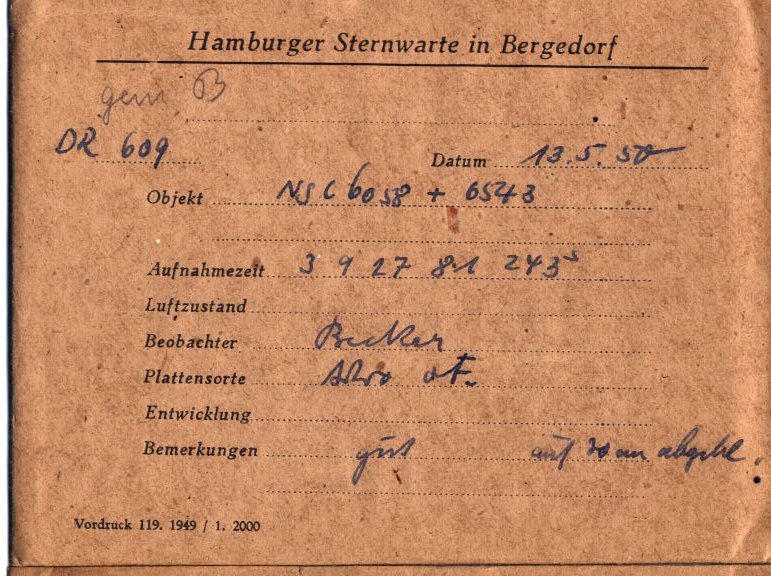 Hamburger Sternwarte in Bergedorf
gem. B
DR 609 Datum 13.5.50
Objekt NGC 6058 + 6543
Aufnahmezeit 3 9 27 81 243s
Luftzustand
Beobachter Becker
Plattensorte Astro
Entwicklung
Bemerkungen gut auf 20 cm
Vordruck 119. 1949 / 1. 2000